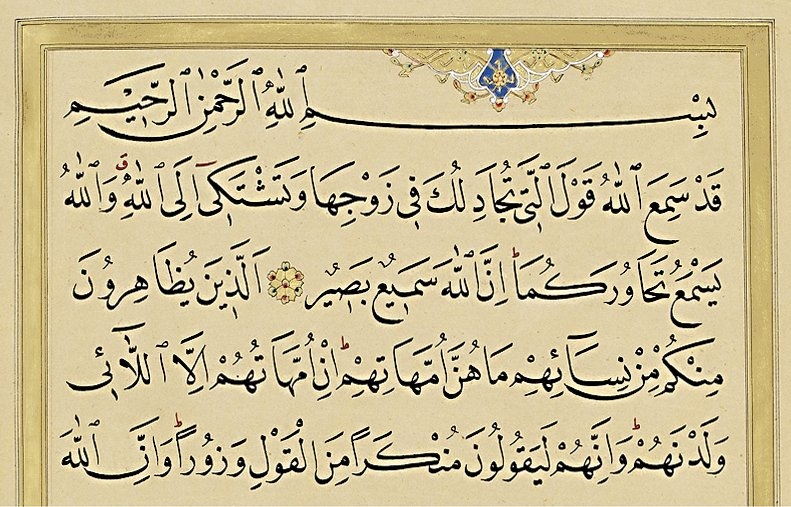 بِسْمِ ٱللّٰهِ ٱلرَّحْمٰنِ ٱلرَّحِيمِ
قَدْ سَمِعَ ٱللّٰهُ قَوْلَ ٱلَّتِي تُجَادِلُكَ فِي زَوْجِهَا وَتَشْتَكِيٓ اِلَى ٱللّٰهِ ۗ وَٱللّٰهُ
يَسْمَعُ تَحَاوُرَكُمَا ۜ اِنَّ ٱللّٰهَ سَمِيعٌ بَصِيرٌ ۝ اَلَّذِينَ يُظَاهِرُونَ
مِنْكُمْ مِنْ نِسَآئِهِمْ مَا هُنَّ اُمَّهَاتِهِمْ ۜ اِنْ اُمَّهَاتُهُمْ اِلَّا ٱللَّٓائِي
وَلَدْنَهُمْ ۜ وَاِنَّهُمْ لَيَقُولُونَ مُنْكَرًا مِنَ ٱلْقَوْلِ وَزُورًا ۜ وَاِنَّ ٱللّٰهَ